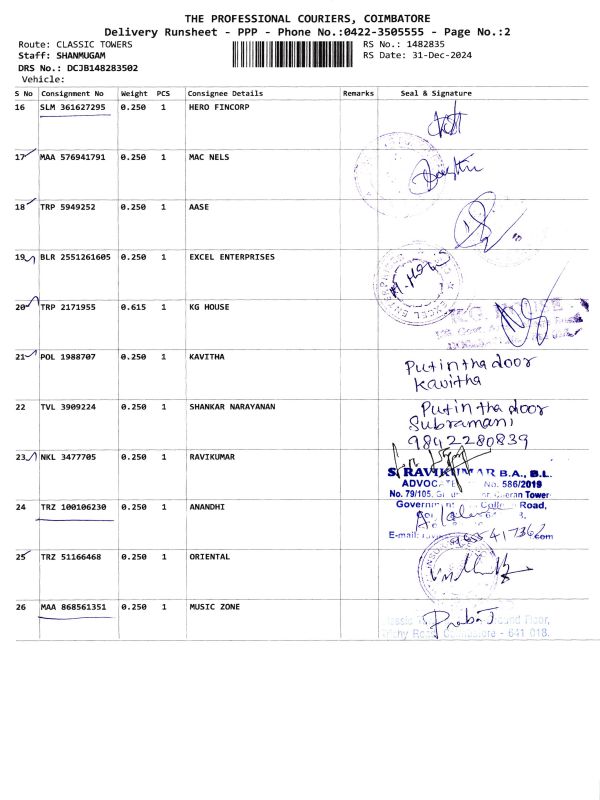 THE PROFESSIONAL COURIERS, COIMBATORE
Delivery Runsheet - PPP - Phone No.:0422-3505555 - Page No.:2
Route: CLASSIC TOWERS RS No.: 1482835
Staff: SHANMUGAM RS Date: 31-Dec-2024
DRS No.: DCJB148283502
Vehicle:
S No Consignment No Weight PCS Consignee Details Remarks Seal & Signature
16 SLM 361627295 0.250 1 HERO FINCORP
17 MAA 576941791 0.250 1 MAC NELS
18 TRP 5949252 0.250 1 AASE
19 BLR 2551261605 0.250 1 EXCEL ENTERPRISES
20 TRP 2171955 0.615 1 KG HOUSE
21 POL 1988707 0.250 1 KAVITHA
Put in tha door
Kavitha
22 TVL 3909224 0.250 1 SHANKAR NARAYANAN
Put in tha door
Subramani
9842280839
23 NKL 3477705 0.250 1 RAVIKUMAR
S. RAVIKUMAR B.A., B.L.
ADVOCATE No. 586/2019
No. 79/105, Cheran Tower
Government College Road,
E-mail:
24 TRZ 100106230 0.250 1 ANANDHI
25 TRZ 51166468 0.250 1 ORIENTAL
26 MAA 868561351 0.250 1 MUSIC ZONE
Floor,
Coimbatore - 641 018.